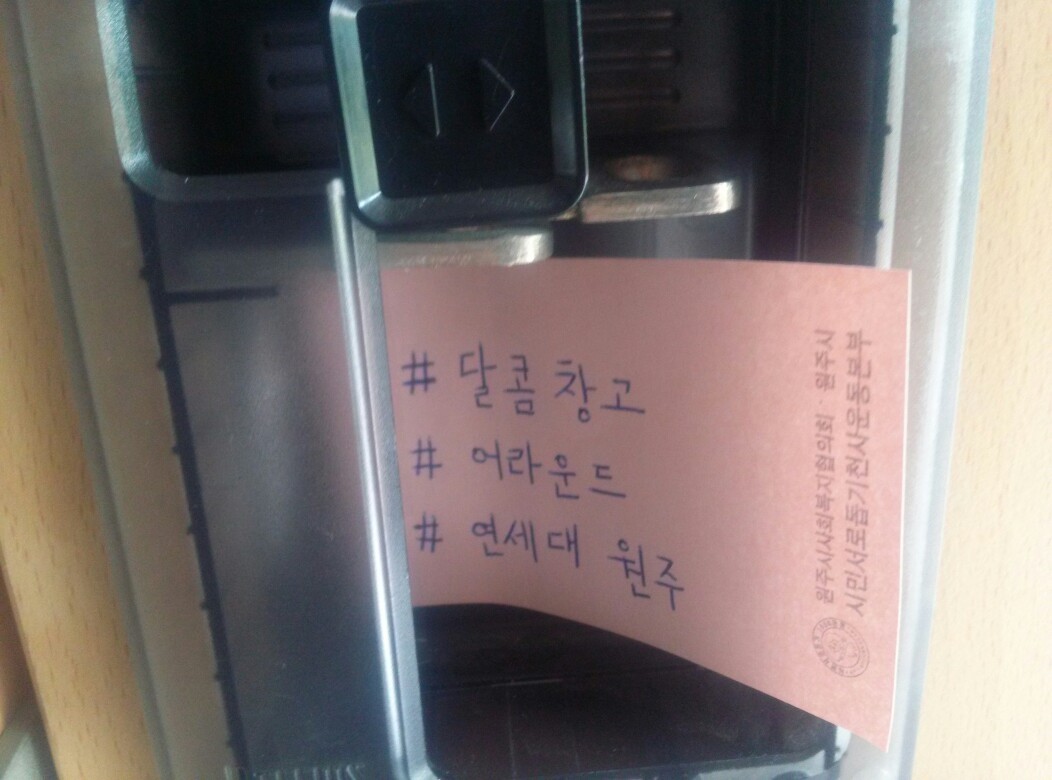 # 달콤창고
# 어라운드
# 연세대 원주
원주시사회복지협의회 · 원주시
시민서로돕기천사운동본부